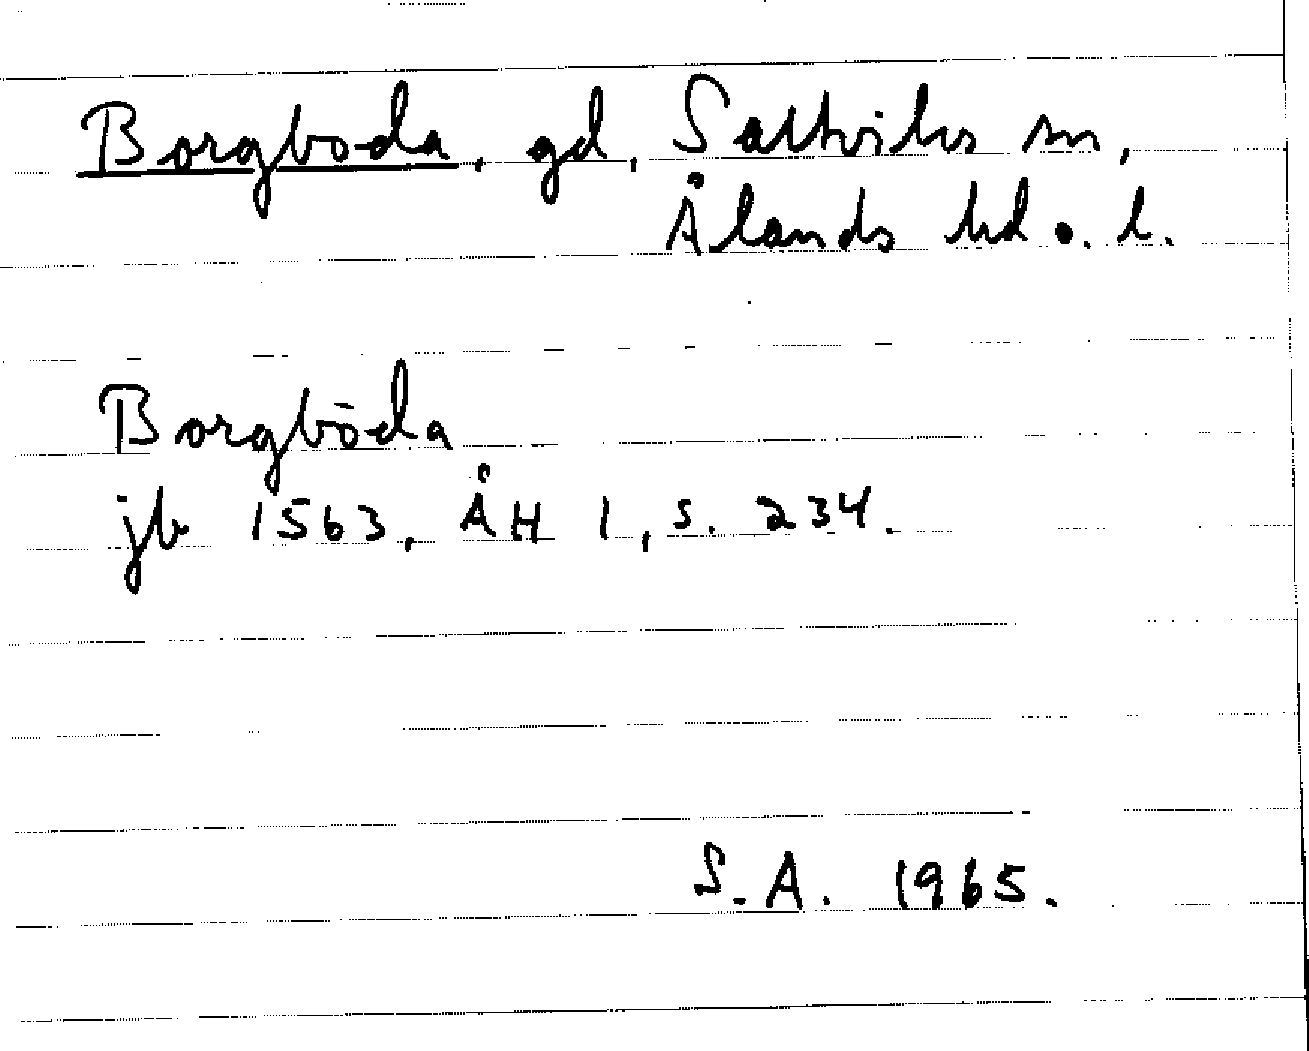 Borgboda, gd, Saltviks sn,
Ålands hd o. l.
Borgbōda
jb 1563, ÅH 1, s. 234.
S.A. 1965.